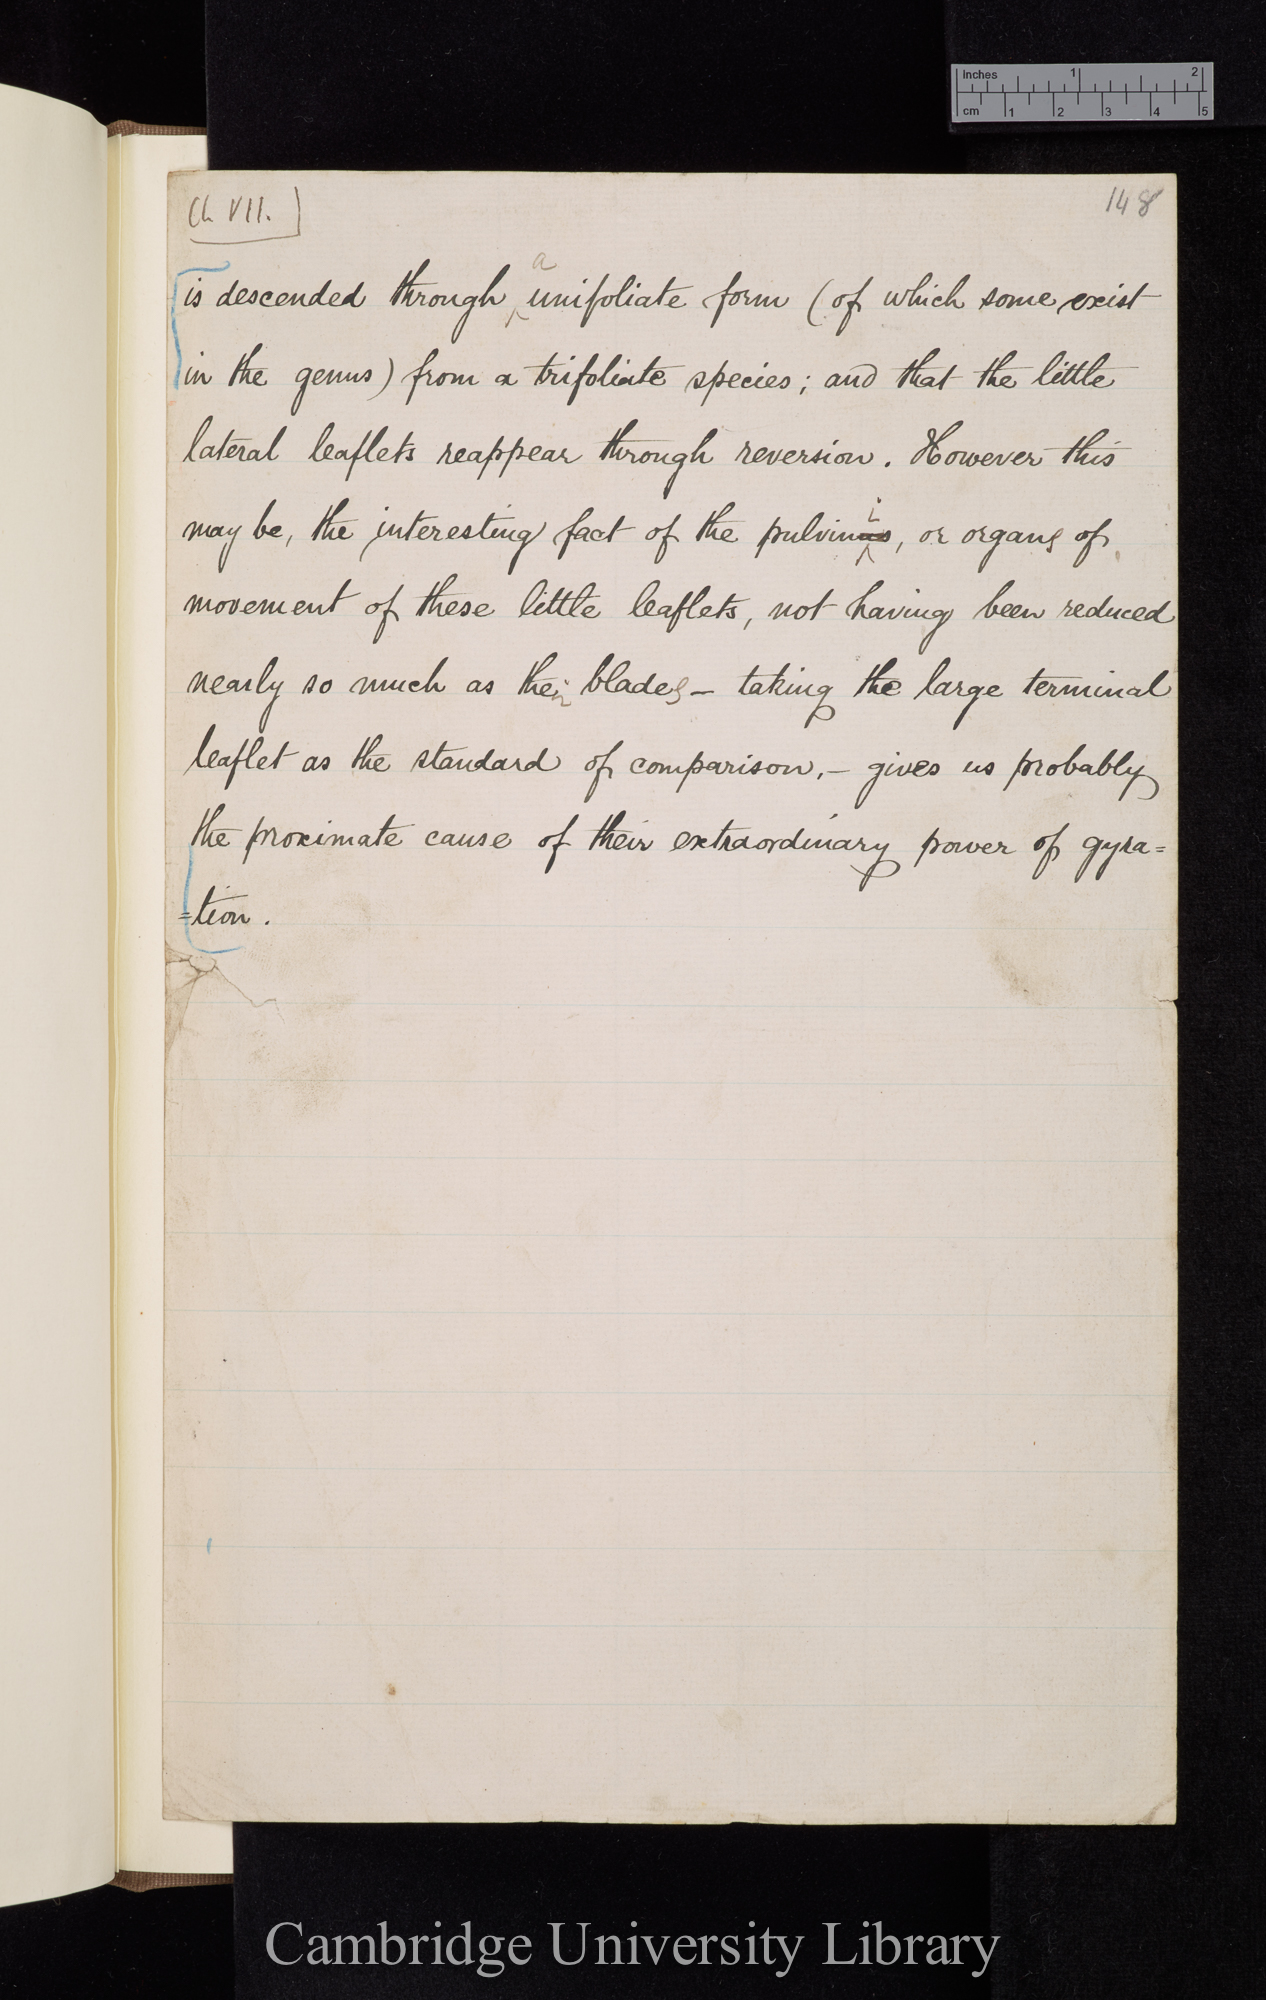 Inches 1 2
cm 1 2 3 4 5
Ch VII.
148
is descended through a unifoliate form (of which some exist
in the genus) from a trifoliate species; and that the little
lateral leaflets reappear through reversion. However this
may be, the interesting fact of the pulvini, or organs of
movement of these little leaflets, not having been reduced
nearly so much as their blades – taking the large terminal
leaflet as the standard of comparison, – gives us probably
the proximate cause of their extraordinary power of gyra=
=tion.
Cambridge University Library